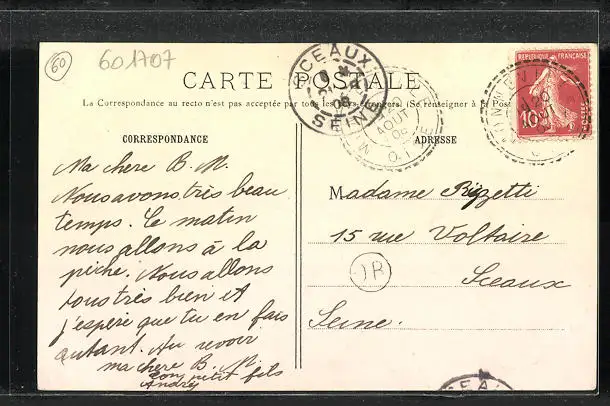 60
601707
CARTE POSTALE
La Correspondance au recto n'est pas acceptée par tous les pays étrangers (Se renseigner à la Poste
CORRESPONDANCE
ADRESSE
SCEAUX
SEINE
AOUT
REPUBLIQUE FRANÇAISE
10
POSTES
Ma chere B. M.
Nous avons très beau
temps. Ce matin
nous allons à la
pêche. Nous allons
tous très bien et
j'espère que tu en fais
autant. Au revoir
ma chere B. M.
ton petit fils
André
Madame Rizzetti
15 rue Voltaire
Sceaux
Seine.
OR
SCEAU